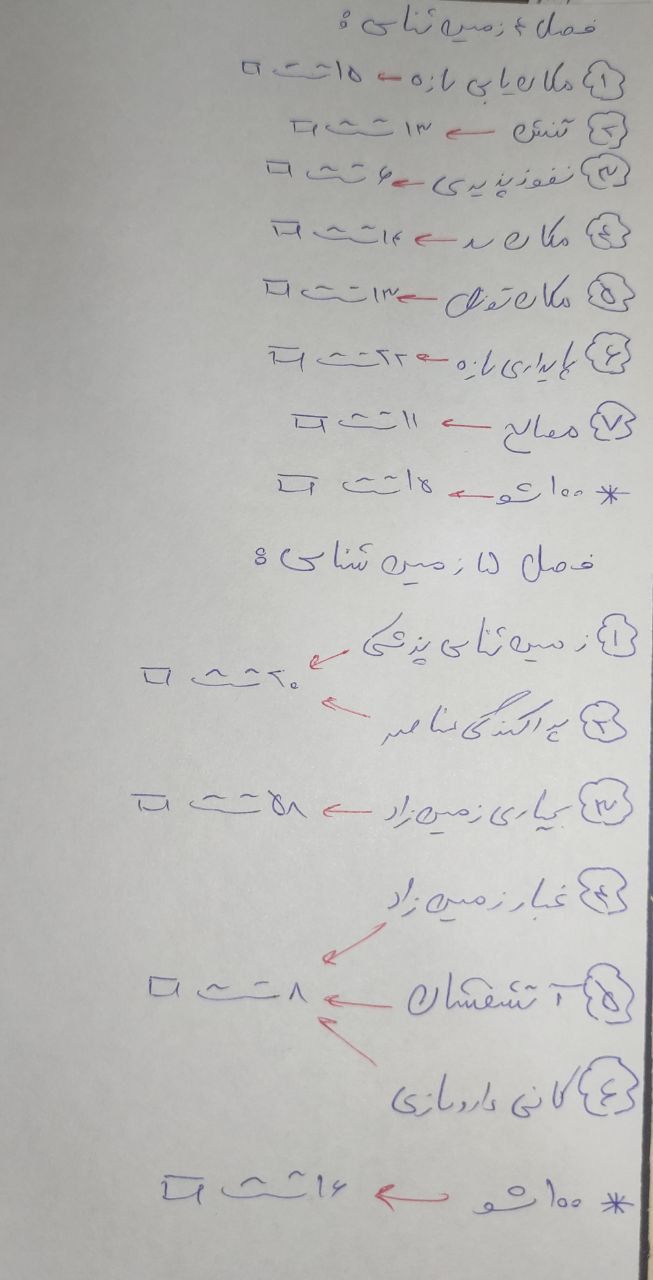 فصل ۴ زمین شناسی :
① مکان یابی سازه ← ۱۵ تست □
② تنش ← ۱۳ تست □
③ نفوذپذیری ← ۶ تست □
④ مکان سد ← ۱۴ تست □
⑤ مکان تونل ← ۱۳ تست □
⑥ پایداری سازه ← ۲۲ تست □
⑦ مصالح ← ۱۱ تست □
* ۱۰۰ شو ← ۱۵ تست □
فصل ۵ زمین شناسی :
① زمین شناسی پزشکی
۲۰ تست □
② پراکندگی عناصر
③ بیماری زمین زاد ← ۵۸ تست □
④ غبار زمین زاد
⑤ آتشفشان ← ۸ تست □
⑥ کانی داروسازی
* ۱۰۰ شو ← ۱۶ تست □